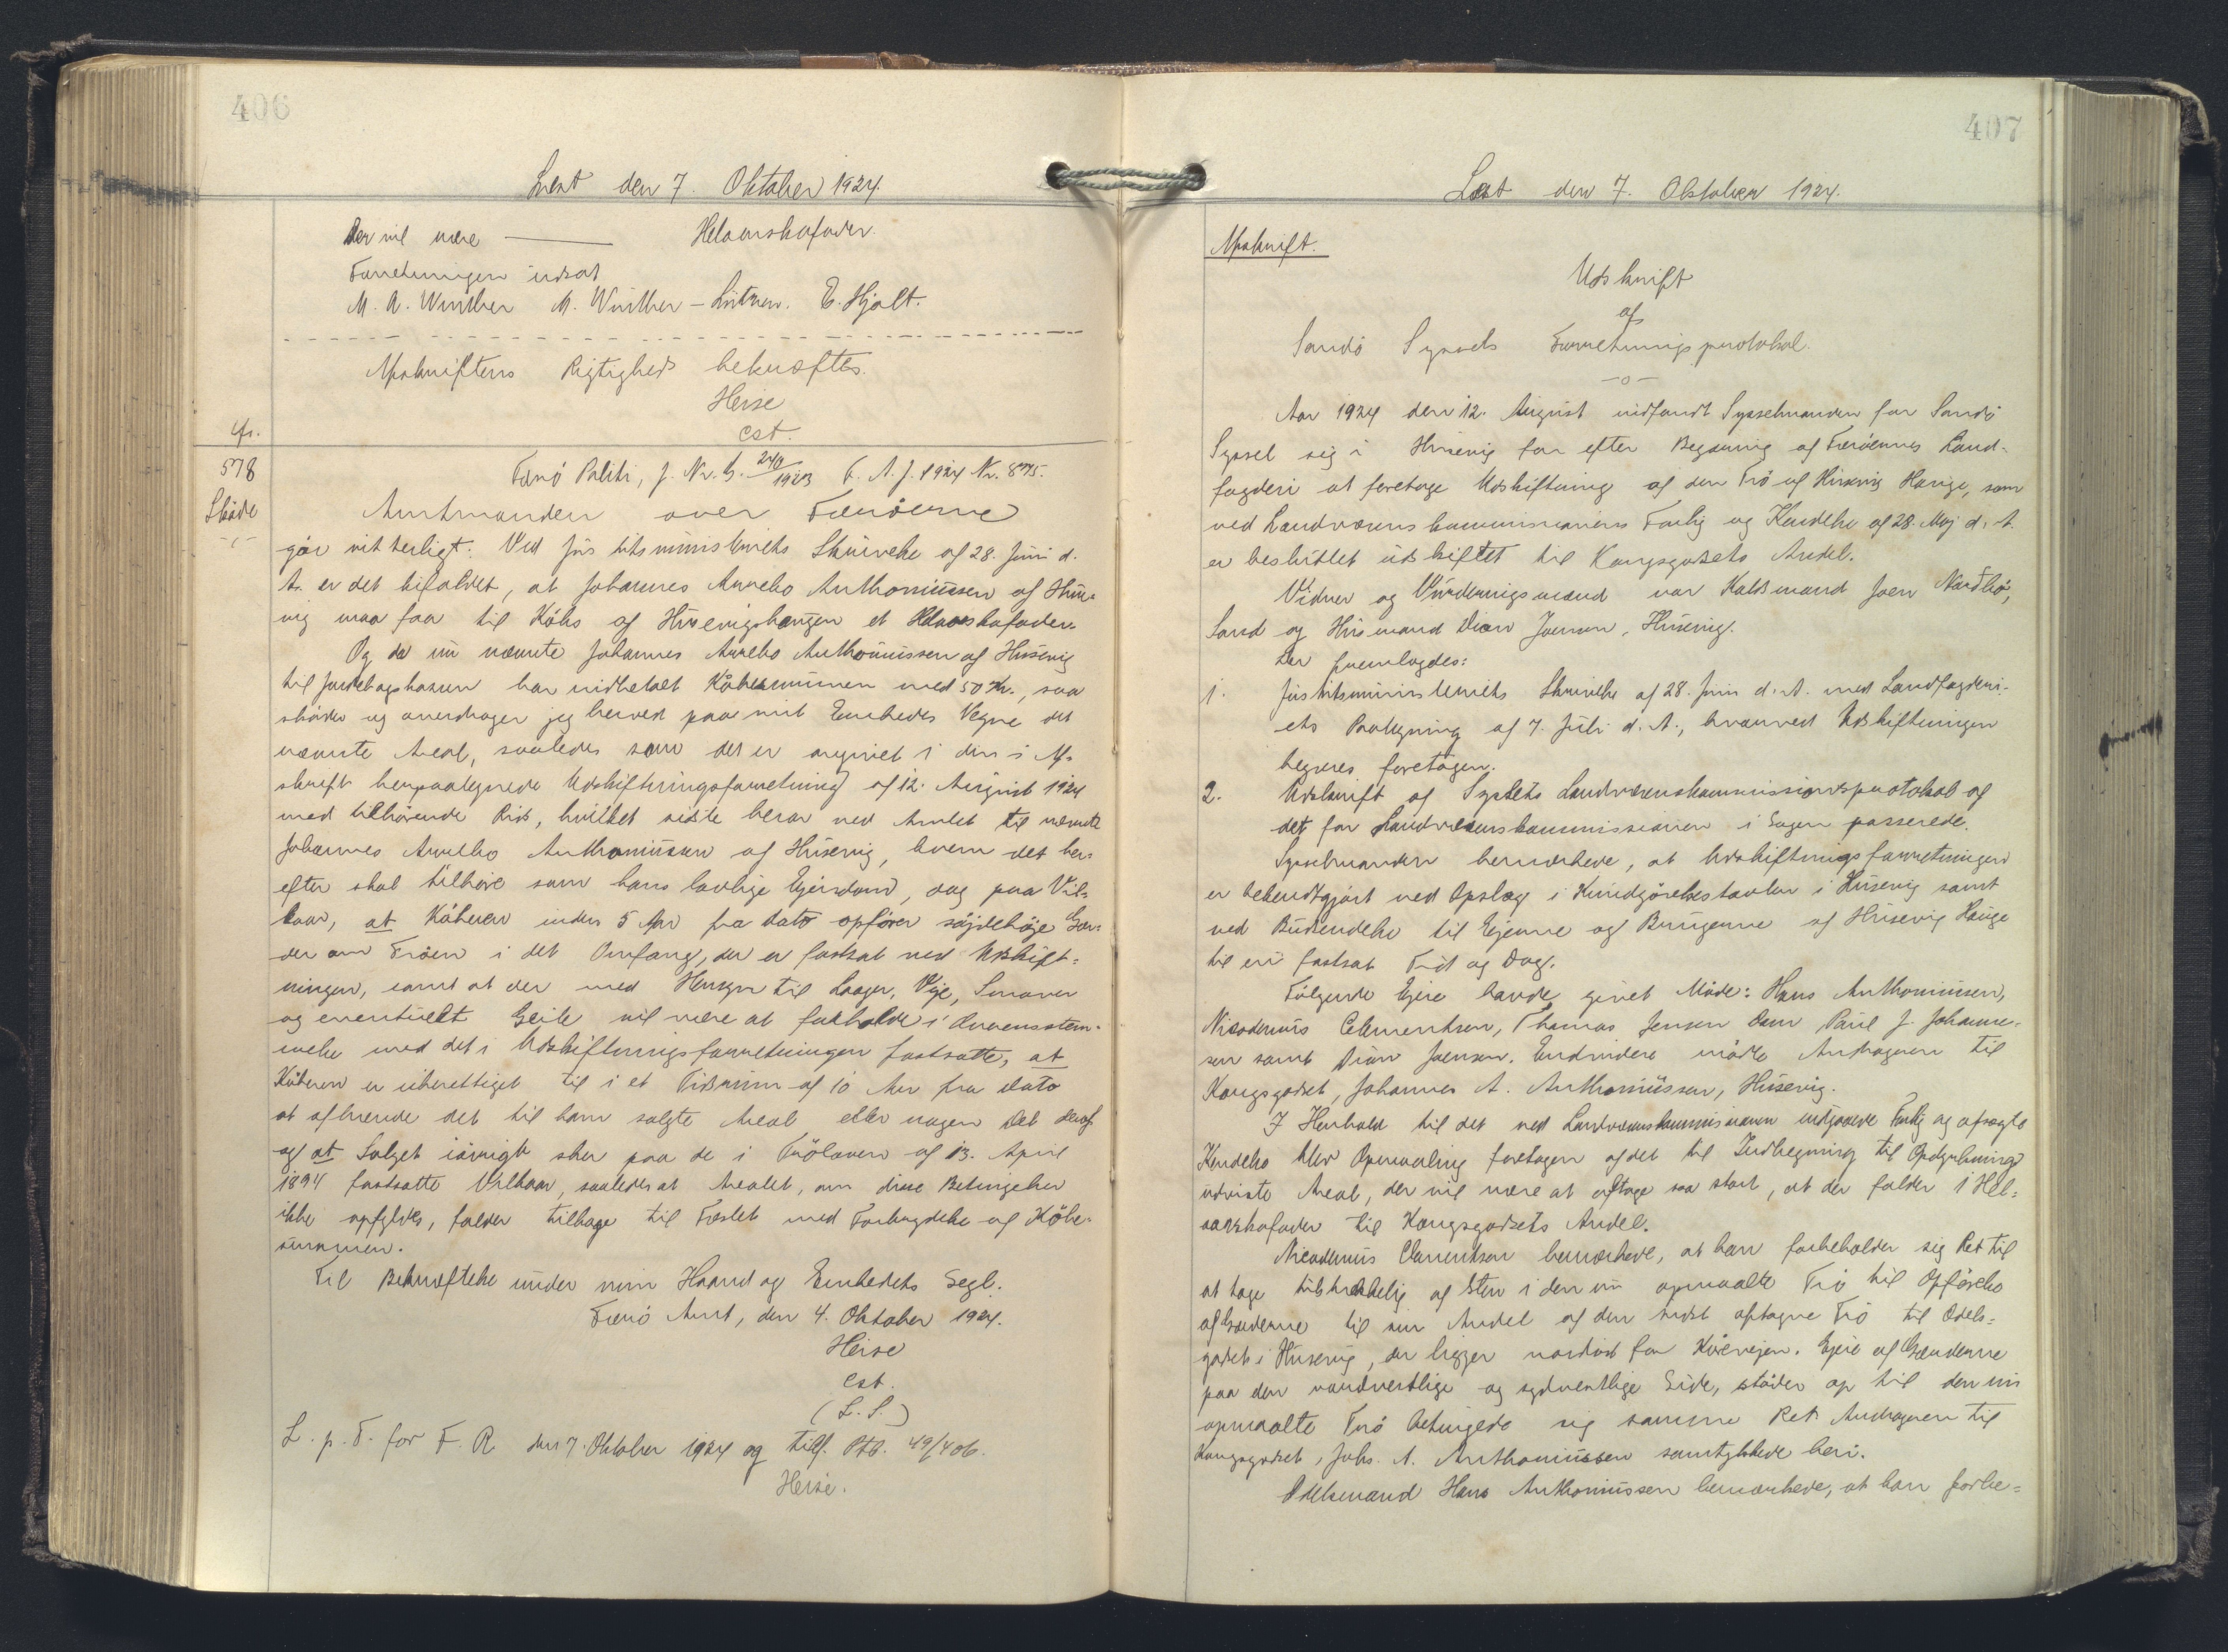 406
Læst den 7. Oktober 1924.
Der vil være ——— Helaarskofoder.
Forretningen udsat
M. A. Winther M. Winther – Lützen. E. Hjalt.
Afskriftens Rigtighed bekræftes.
Heise
cst.
cfr.
578
Skøde
Færø Politi, J. Nr. G. 240/1923 F. A. J. 1924 Nr. 875.
Amtmanden over Færöerne
gör vitterligt: Ved Justitsministeriets Skrivelse af 28. Juni d.
A. er det bifaldet, at Johannes Aurelho Anthoniussen af Huse-
vig maa faa til Købs af Husevigshaugen et Helaarskofoder.
Og da nu nævnte Johannes Aurelho Anthoniussen af Husevig
til Jordebogskassen har indbetalt Købesummen med 50 Kr., saa
skøder og overdrager jeg herved paa mit Embedes Vegne det
nævnte Areal, saaledes som det er angivet i den i Af-
skrift herpaategnede Udskiftningsforretning af 12. August 1924
med tilhörende Rids, hvilket sidste beror ved Amtet til nævnte
Johannes Aurelho Anthoniussen af Husevig, hvem det her-
efter skal tilhöre som hans lovlige Ejendom, dog paa Vil-
kaar, at Køberen inden 5 Aar fra Dato opfører söjdehöje Gær-
der om Tröen i det Omfang, der er fastsat ved Udskift-
ningen, samt at der med Hensyn til Laager, Veje, Smover
og eventuelt Geile vil være at forholde i Overensstem-
melse med det i Udskiftningsforretningen fastsatte, at
Køberen er uberettiget til i et Tidsrum af 10 Aar fra Dato
at afhænde det til ham solgte Areal eller nogen Del deraf
og at Salget iøvrigt sker paa de i Tröloven af 13. April
1894 fastsatte Vilkaar, saaledes at Arealet, om disse Betingelser
ikke opfyldes, falder tilbage til Fæstet med Fortrydelse af Købe-
summen.
Til Bekræftelse under min Haand og Embedets Segl.
Færö Amt, den 4. Oktober 1924.
Heise
cst.
(L. S.)
L. p. T. for F. R. den 7. Oktober 1924 og tilf. Ptb. 49/406.
Heise.
407
Læst den 7. Oktober 1924.
Afskrift.
Udskrift
af
Sandö Syssels Forretningsprotokol.
—o—
Aar 1924 den 12. August indfandt Sysselmanden for Sandö
Syssel sig i Husevig for efter Begæring af Færöernes Land-
fogderi at foretage Udskiftning af den Trö af Husevig Hauge, som
ved Landvæsenskommissionens Forlig og Kendelse af 28. Maj d. A.
er besluttet udskiftet til Kongsgodsets Andel.
Vidner og Vurderingsmænd var Kaldsmand Joen Nordbö,
Sand og Husmand Dian Joensen, Husevig.
Der fremlagdes:
1. Justitsministeriets Skrivelse af 28. Juni d. A. med Landfogderi-
ets Paategning af 7. Juli d. A., hvorved Udskiftningen
begæres foretagen.
2. Udskrift af Sysslets Landvæsenskommissionsprotokol af
det for Landvæsenskommissionen i Sagen passerede.
Sysselmanden bemærkede, at Udskiftningsforretningen
er bekendtgjort ved Opslag i Kundgörelsestavlen i Husevig samt
ved Budsendelse til Ejerne og Brugerne af Husevig Hauge
til nu fastsat Tid og Dag.
Følgende Ejere havde givet Møde: Hans Anthoniussen,
Nicodemus Clementsen, Thomas Jensen Dam Paul J. Johanne-
sen samt Dian Joensen. Endvidere mödte Andrageren til
Kongsgodset, Johannes A. Anthoniussen, Husevig.
I Henhold til det ved Landvæsenskommissionen indgaaede Forlig og afsagte
Kendelse blev Opmaaling foretagen af det til Indhegning til Opdyrkning
udviste Areal, der vil være at aftage saa stort, at der falder 1 Hel-
aarskofoder til Kongsgodsets Andel.
Nicodemus Clementsen bemærkede, at han forbeholder sig Ret til
at tage tilstrækkelig af Sten i den nu opmaalte Trö til Opførelse
af Gærderne til sin Andel af den sidst aftagne Trö til Odels-
godset i Husevig, der ligger nordøst for Kirevejen. Ejere af Gærderne
paa den nordvestlige og sydvestlige Side, støder op til den nu
opmaalte Trö betingede sig samme Ret. Andrageren til
Kongsgodset, Johs. A. Anthoniussen samtykkede heri.
Odelsmand Hans Anthoniussen bemærkede, at han forbe-